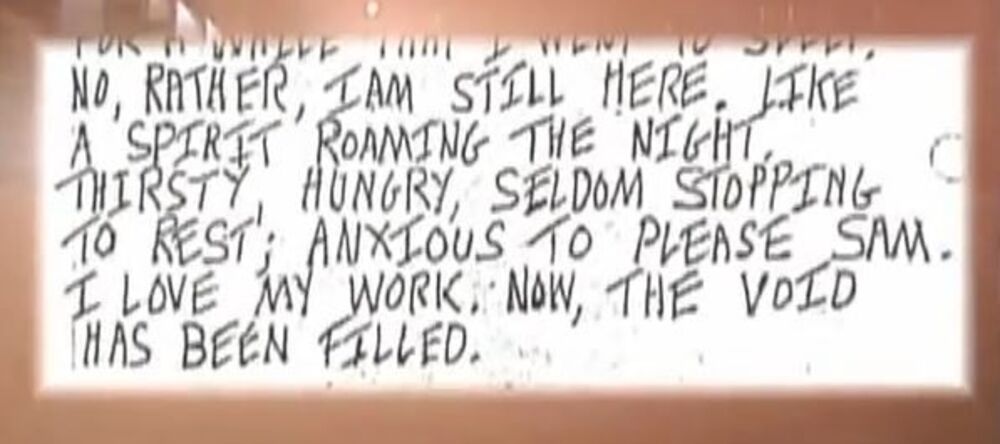 FOR A WHILE THAT I WENT TO SLEEP.
NO, RATHER, I AM STILL HERE. LIKE
A SPIRIT ROAMING THE NIGHT.
THIRSTY, HUNGRY, SELDOM STOPPING
TO REST; ANXIOUS TO PLEASE SAM.
I LOVE MY WORK. NOW, THE VOID
HAS BEEN FILLED.